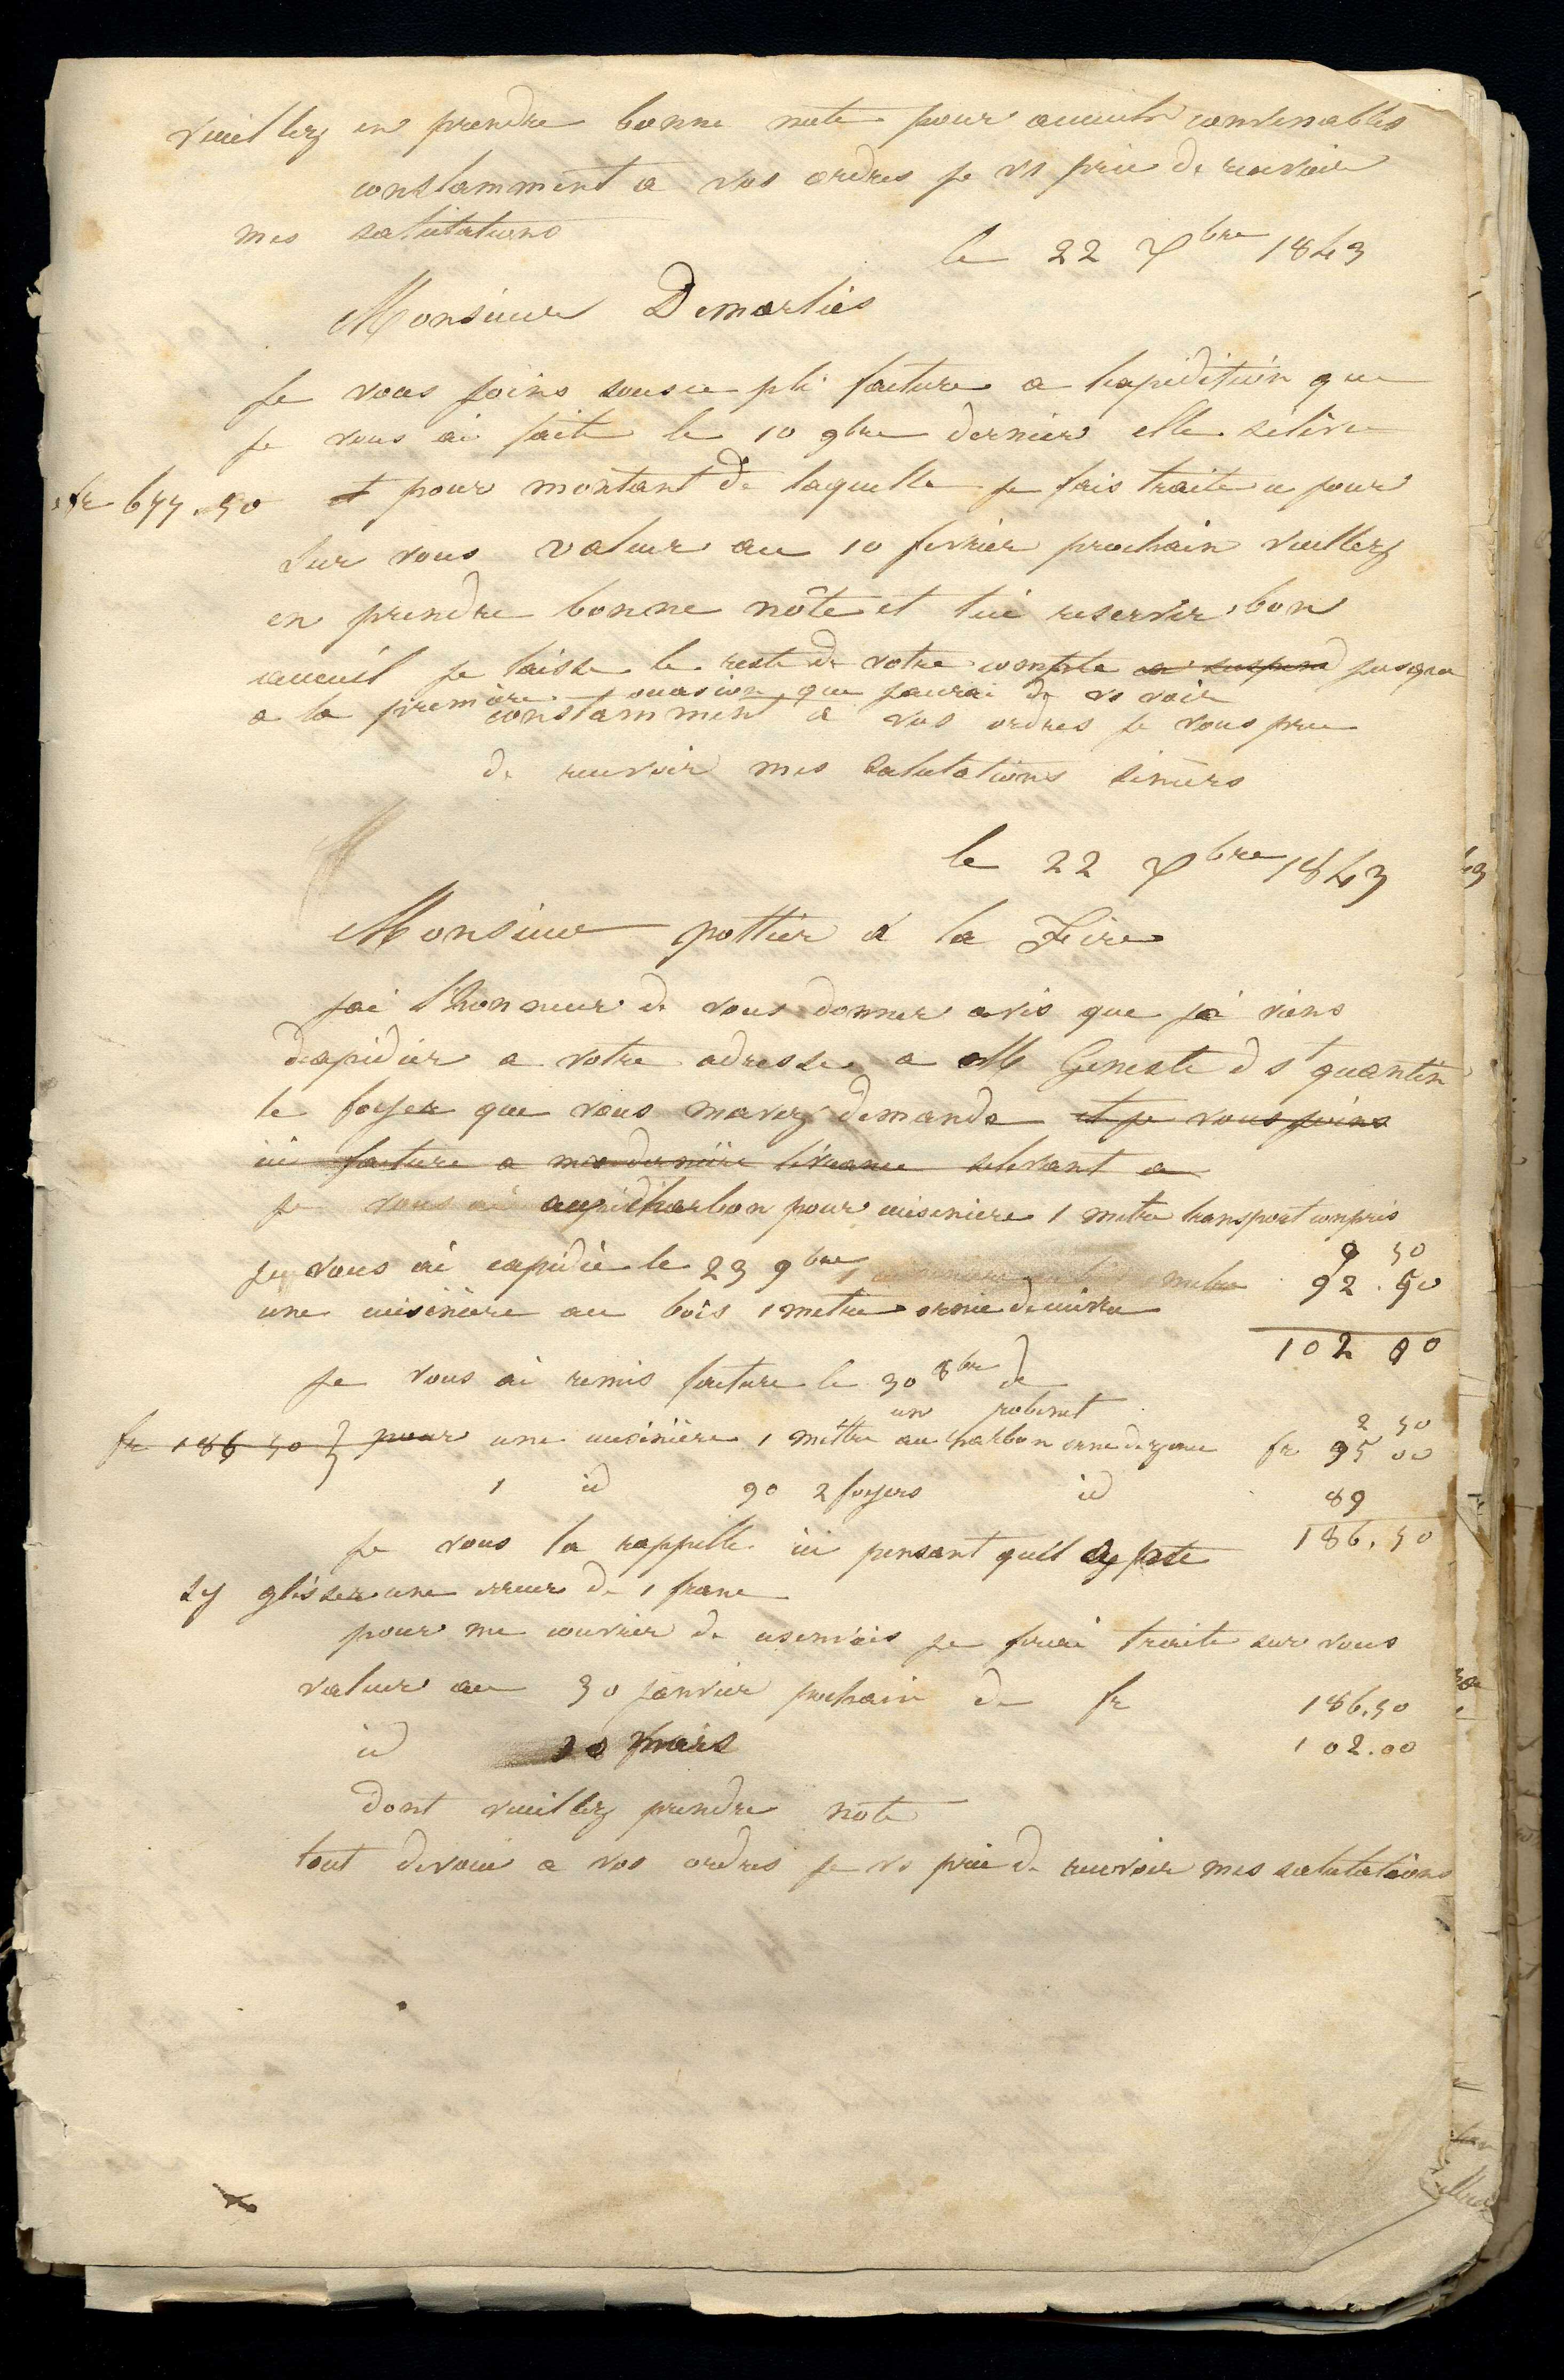 veuillez en prendre bonne note pour accueils convenables
constamment a vos ordres je vs prie de recevoir
mes salutations
le 22 Xbre 1843
Monsieur Demarlies
Je vous joins sous ce pli facture a lexpedition que
je vous ai faite le 10 9bre dernier elle seleve
fr 677.50 et pour montant de laquelle je fais traite ce jour
sur vous valeur au 10 fevrier prochain veuillez
en prendre bonne nôte et lui reserver bon
accueil je laisse le reste de votre compte en suspend jusqua
a la première occasion que jaurai de vs voir
constamment a vos ordres je vous prie
de recevoir mes salutations sincers
le 22 Xbre 1843
Monsieur pottier a la Fère
jai l'honneur de vous donner avis que je viens
dexpedier a votre adresse a M Geneste d st quantin
le foyer que vous mavez demande et je vous joins
ici facture a ma dernière livrance selevant a
je vous ai charbon pour cuisiniere 1 metre transport compris
9 50
je vous ai expédié le 23 9bre metre 92.50
une cuisinière au bois 1 metre ornie de cuivre
102 00
Je vous ai remis facture le 30 8bre de
un robinet 2 50
fr 186 50 } pour une cuisinière 1 mêtre au charbon orne de zinc fr 95 00
1 id 90 2 foyers id 89
Je vous la rappelle ici pensant quil
186.50
sy glisser une erreur de 1 franc
pour me couvrir de cesenvois je ferai traite sur vous
valeur au 30 janvier prochain de fr 186.50
id 10 mars 102.00
dont veuillez prendre note
tout devoué a vos ordres je vs prie de recevoir mes salutations